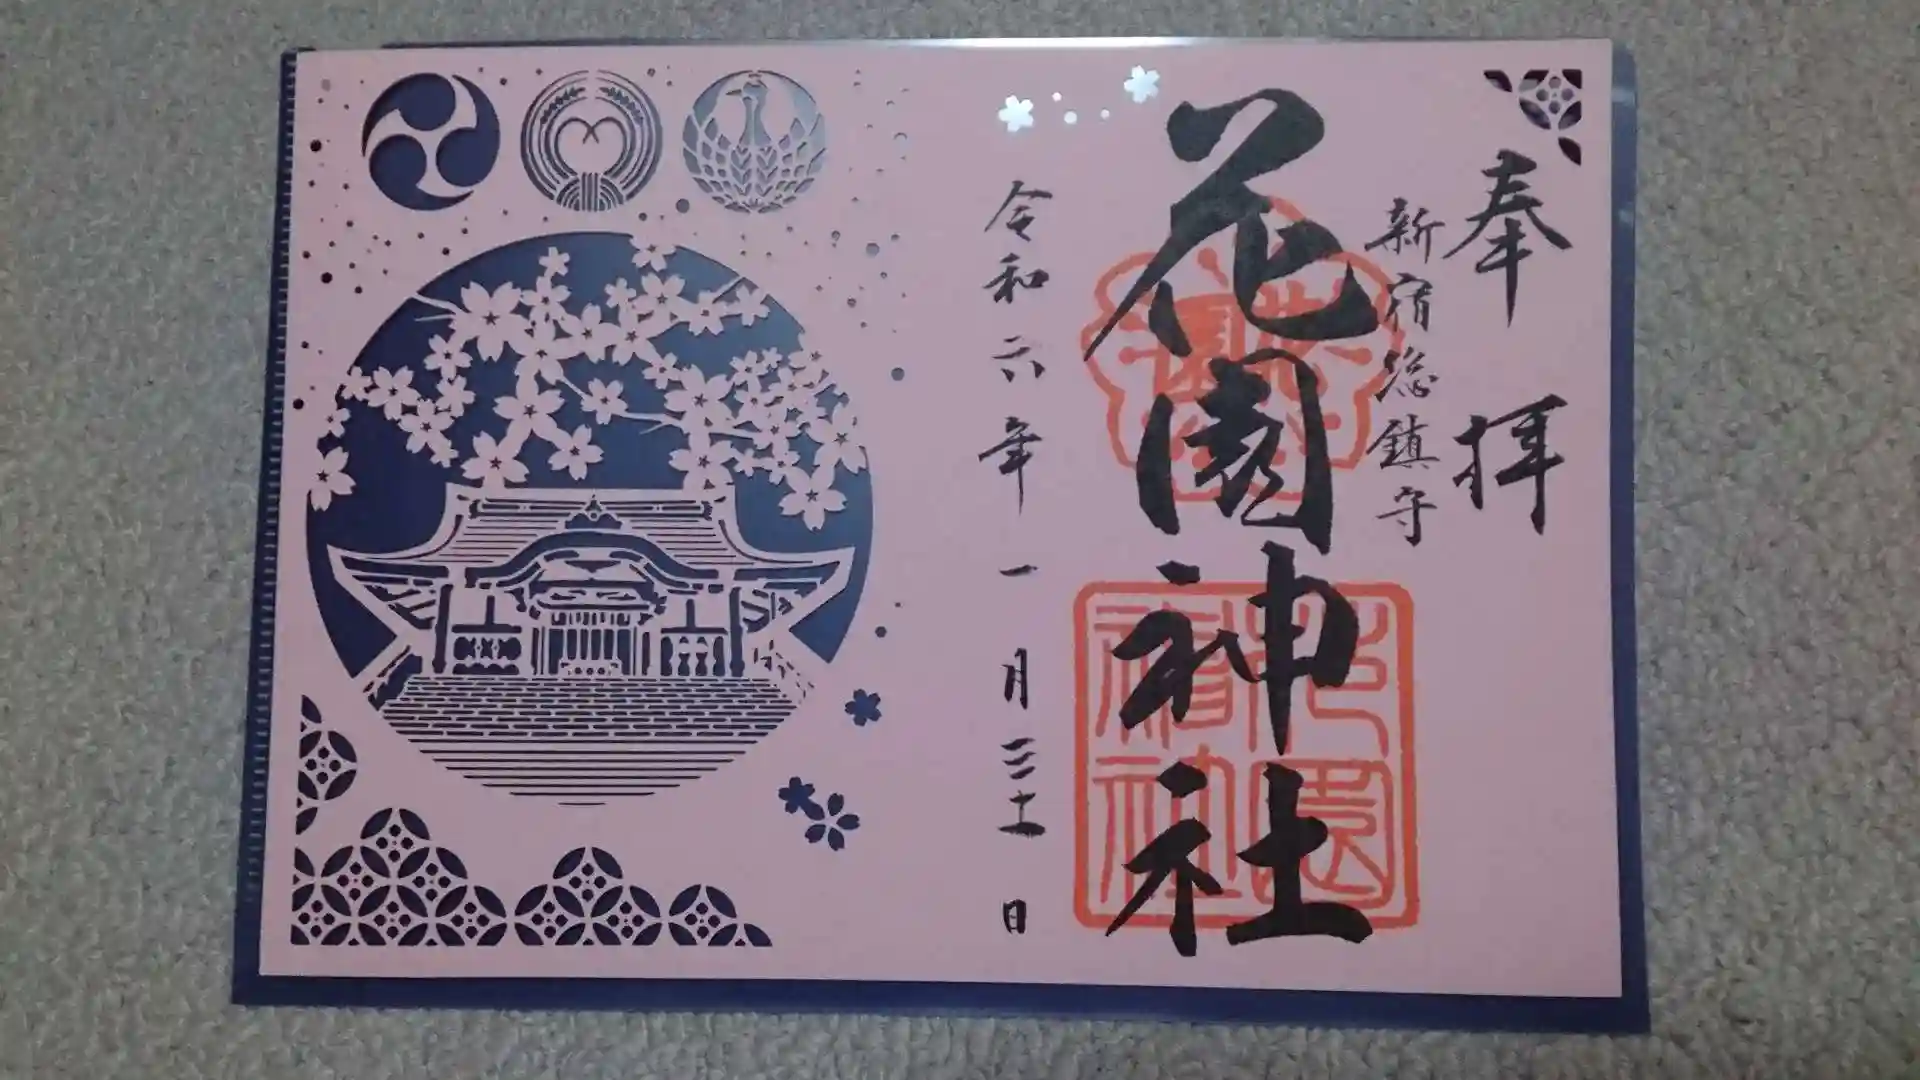 奉拝
新宿総鎮守
花園神社
令和六年一月三十一日